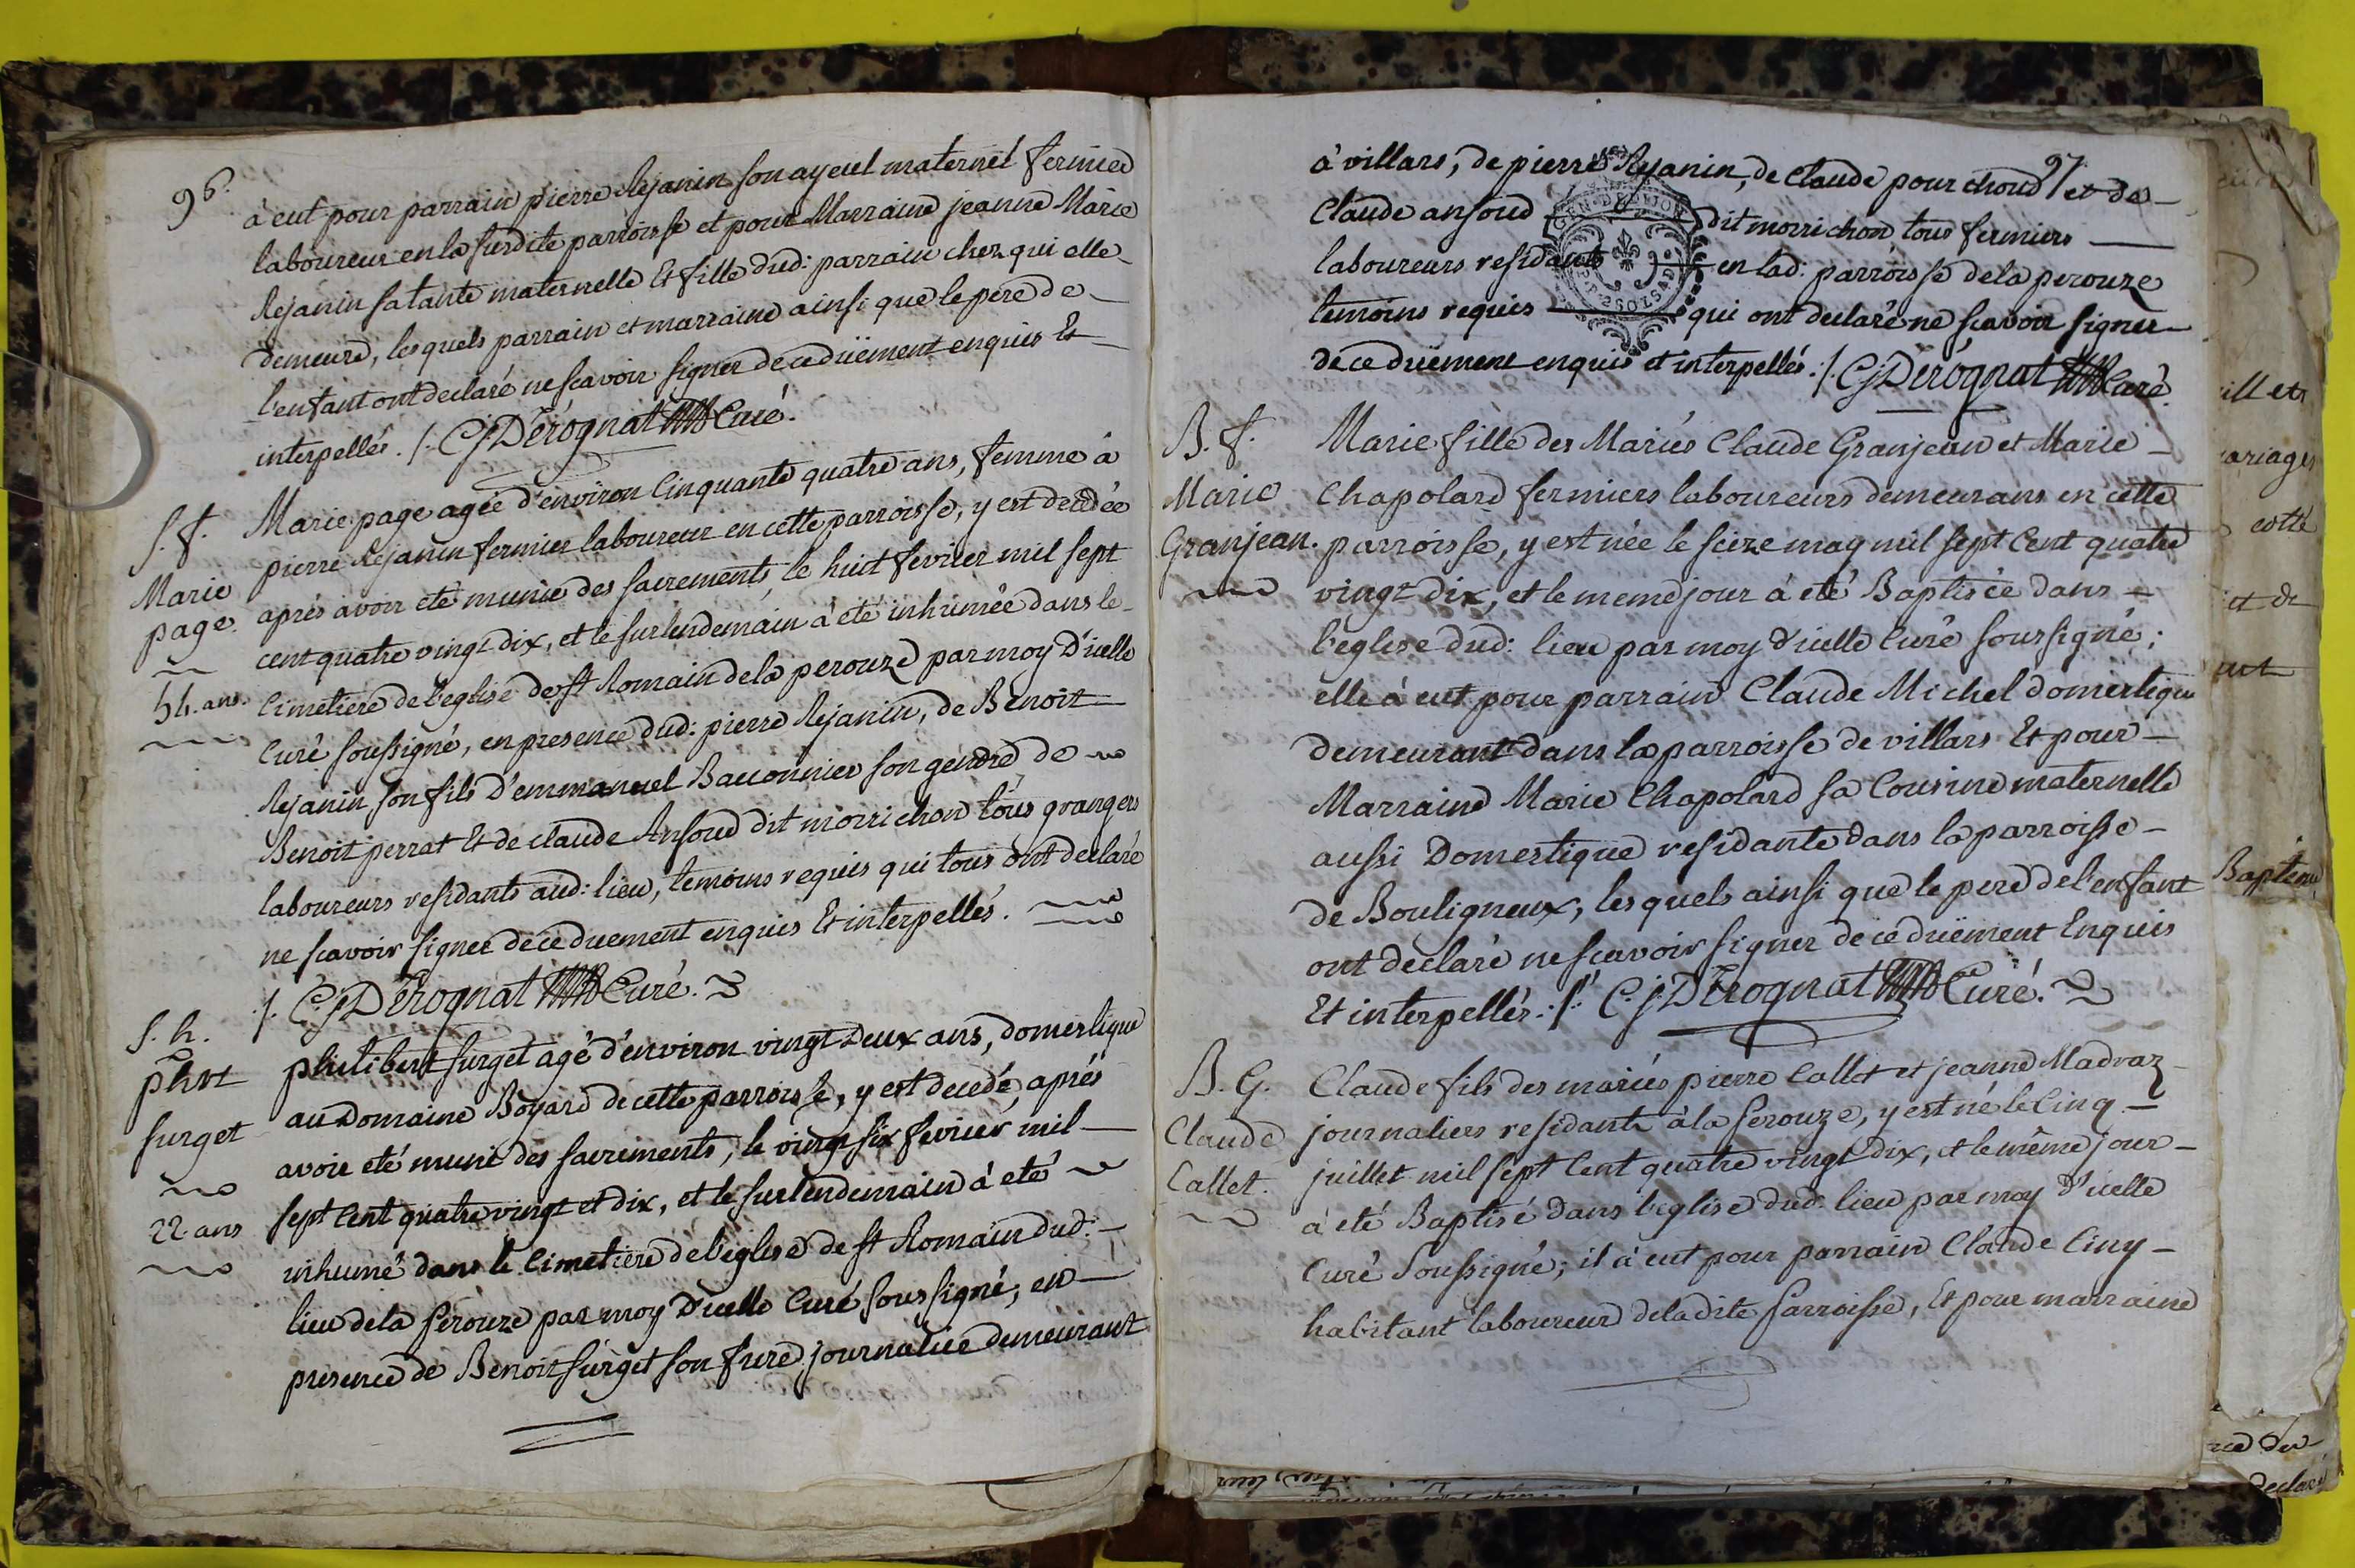 96.
à eut pour parrain pierre Rejanin son ayeul maternel fermier
laboureur en la susdite parroisse et pour Marraine jeanne Marie
Rejanin sa tante maternelle Et fille dud: parrain chez qui elle
demeure, lesquels parrain et marraine ainsi que le pere de
l'enfant ont declaré ne scavoir signer de ce düement enquis Et
interpellés ./. CJ Derognat Curé.
S. f.
Marie
page.
54. ans.
Marie page agée d'environ Cinquante quatre ans, femme à
pierre Rejanin fermier laboureur en cette parroisse, y est decedée
aprés avoir eté munie des sacrements, le huit fevrier mil sept
cent quatre vingt dix, et le surlendemain à eté inhumée dans le
Cimetiere de l'eglise de st Romain de la perouze par moy D'icelle
Curé soussigné, en presence dud: pierre Rejanin, de Benoit
Rejanin son fils D'emmanuel Bauonnier son gendre de
Benoit perrat Et de claude Ansoud dit morrichon tous grangers
laboureurs residants aud: lieu, temoins requis qui tous ont declaré
ne scavoir signer de ce duement enquis Et interpellés.
./. CJ Derognat Curé.
S. h.
phbt
surget
22 ans
philibert surget agé d'environ vingt Deux ans, domestique
au Domaine Boyard de cette parroisse, y est decedé, aprés
avoir eté muni des sacrements, le vingt six fevrier mil
sept Cent quatre vingt et dix, et le surlendemain à eté
inhumé dans le Cimetiere de l'eglise de st Romain dud:
lieu de la Perouze par moy D'icelle Curé soussigné, en
presence de Benoit surget son frere journalier demeurant
97.
à villars, de pierre Rejanin, de Claude pourchoud et de
Claude ansoud dit morrichon, tous fermiers
laboureurs residants en lad: parroisse de la perouze
temoins requis qui ont declaré ne scavoir signer
de ce duement enquis et interpellés ./. CJ Derognat Curé
GEN. DE DIJON
B. f.
Marie
Granjean.
Marie fille des Mariés Claude Granjean et Marie
Chapolard fermiers laboureurs demeurans en cette
parroisse, y est née le seize may mil sept Cent quatre
vingt dix, et le meme jour à eté Baptisée dans
l'eglise dud: lieu par moy d'icelle Curé soussigné;
elle à eut pour parrain Claude Michel domestique
demeurant dans la parroisse de villars Et pour
Marraine Marie Chapolard sa Cousine maternelle
aussi Domestique residante dans la parroisse
de Bouligneux, lesquels ainsi que le pere de l'enfant
ont declaré ne scavoir signer de ce düement Enquis
Et interpellés ./. CJ Derognat Curé.
B. G.
Claude
Callet.
Claude fils des mariés pierre Callet et jeanne Madraz
journaliers residants à la Perouze, y est né le Cinq
juillet mil sept Cent quatre vingt Dix, et le même jour
à eté Baptisé dans l'eglise dud: lieu par moy d'icelle
Curé Soussigné; il à eut pour parrain Claude Ciny
habitant laboureur de ladite Parroisse, Et pour marraine
ariages
cotté
et de
Baptême
declaré